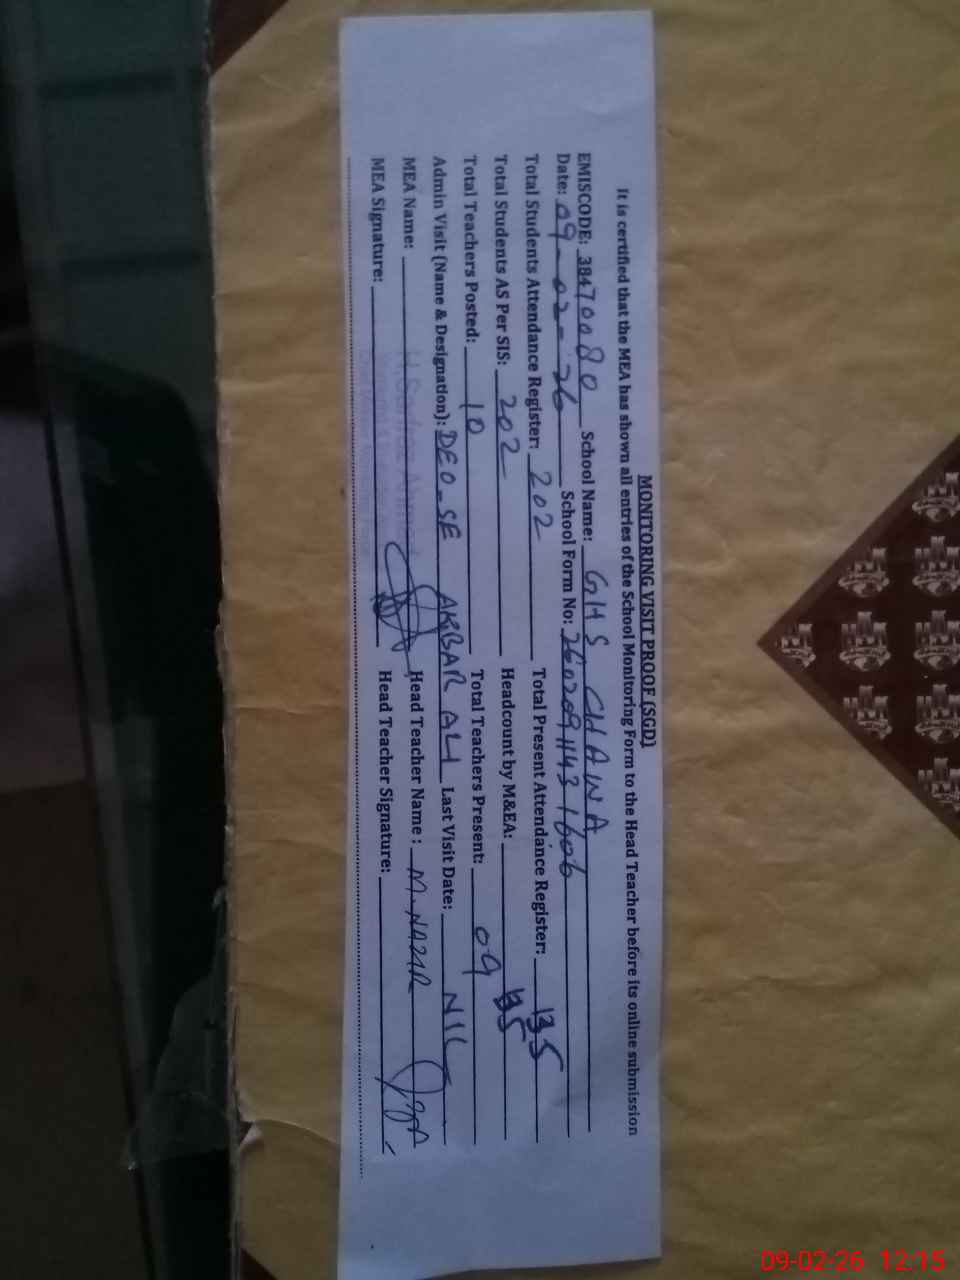 MONITORING VISIT PROOF (SGD)
It is certified that the MEA has shown all entries of the School Monitoring Form to the Head Teacher before its online submission
EMISCODE: 38470080 School Name: GHS CHAWA
Date: 09-02-26 School Form No: 26020911431606
Total Students Attendance Register: 202 Total Present Attendance Register: 135
Total Students AS Per SIS: 202 Headcount by M&EA: 135
Total Teachers Posted: 10 Total Teachers Present: 09
Admin Visit (Name & Designation): DEO-SE AKBAR ALI Last Visit Date: NIL
MEA Name: Head Teacher Name : M. NAZIR
MEA Signature: Head Teacher Signature:
09-02-26 12:15